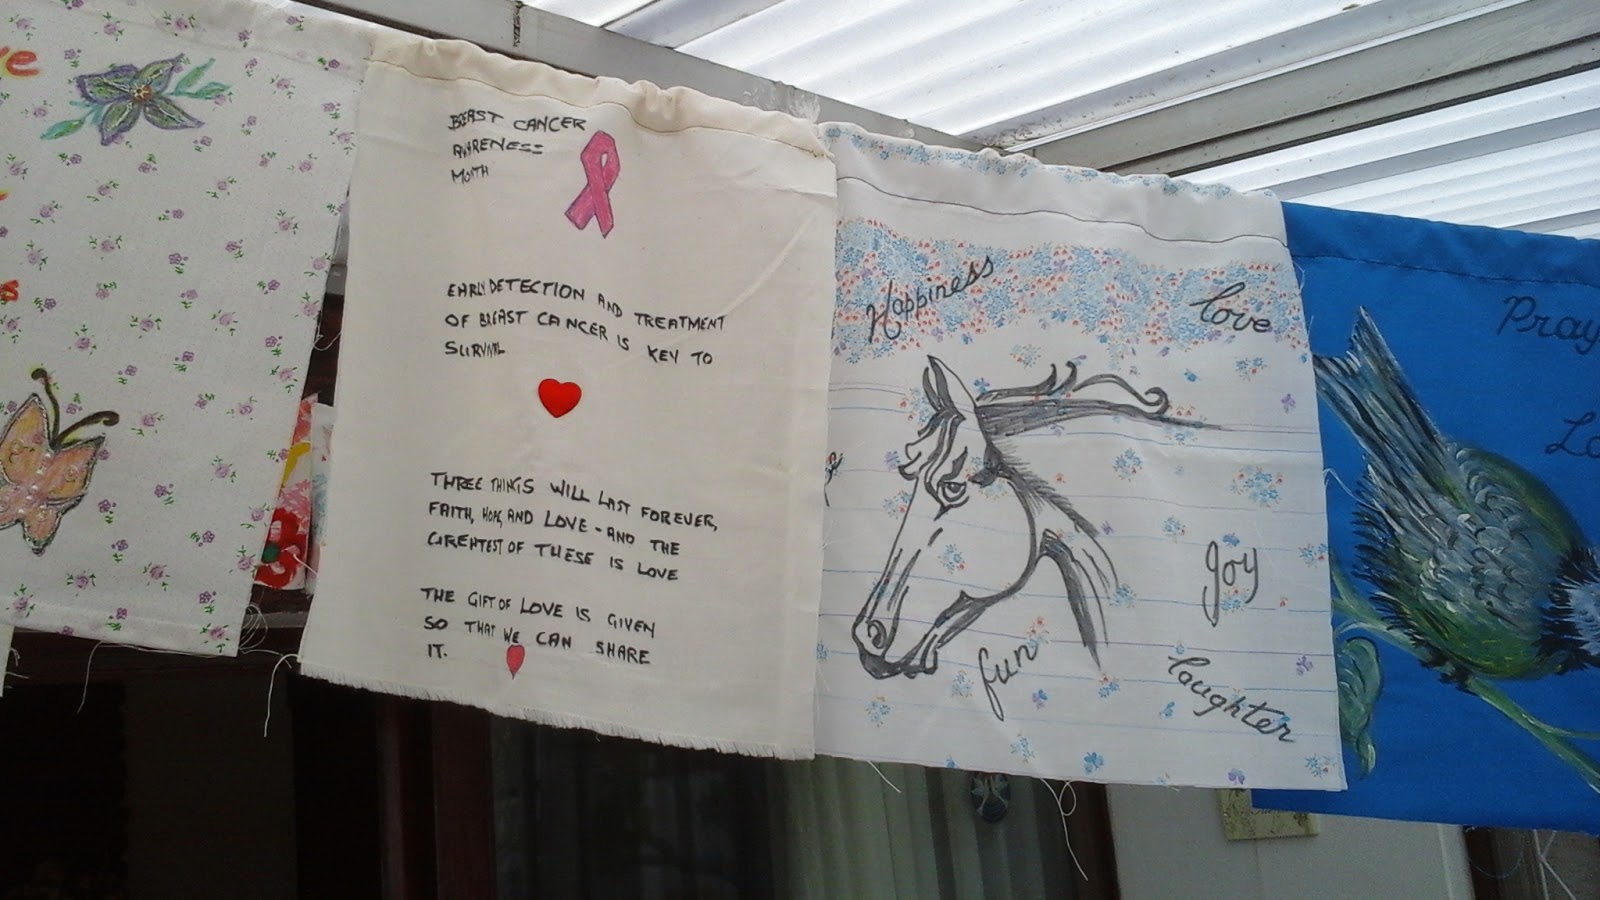 BREAST CANCER
AWARENESS
MONTH
EARLY DETECTION AND TREATMENT
OF BREAST CANCER IS KEY TO
SURVIVAL
THREE THINGS WILL LAST FOREVER,
FAITH, HOPE, AND LOVE - AND THE
GREATEST OF THESE IS LOVE
THE GIFT OF LOVE IS GIVEN
SO THAT WE CAN SHARE
IT.
Happiness
love
Joy
fun
laughter
Pray